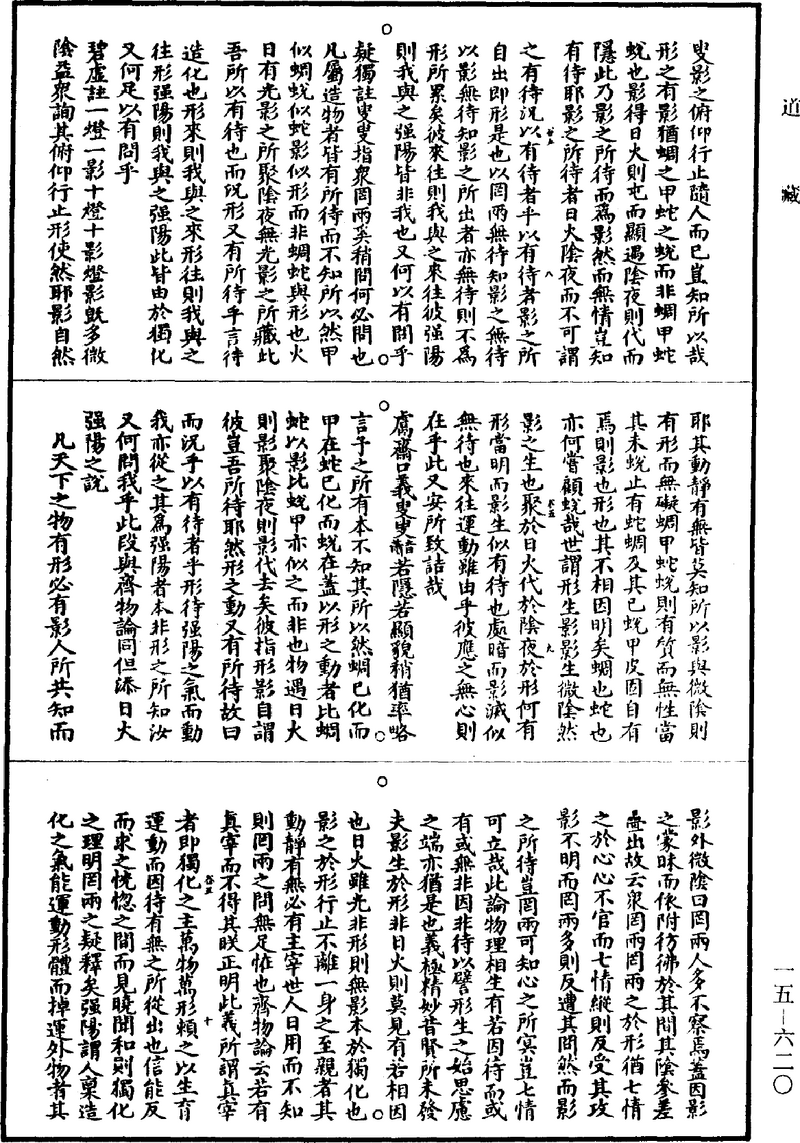 道藏
叟影之俯仰行止隨人而已豈知所以哉
形之有影猶蜩之甲蛇之蛻而非蜩甲蛇
蛻也影得日火則屯而顯遇陰夜則代而
隱此乃影之所待而爲影然而無情豈知
有待耶影之所待者日火陰夜而不可謂
之有待況以有待者乎以有待者影之所
自出即形是也以罔兩無待知影之無待
以影無待知影之所出者亦無待則不爲
形所累矣彼來往則我與之來往彼強陽
則我與之強陽皆非我也又何以有問乎
疑獨註叟叟指衆罔兩奚稍問何必問也
凡屬造物者皆有所待而不知所以然甲
似蜩蛻似蛇影似形而非蜩蛇與形也火
日有光影之所聚陰夜無光影之所藏此
吾所以有待也而況形又有所待乎言待
造化也形來則我與之來形往則我與之
往形強陽則我與之強陽此皆由於獨化
又何足以有問乎
碧虛註一燈一影十燈十影燈影旣多微
陰益衆詢其俯仰行止形使然耶影自然
耶其動靜有無皆莫知所以影與微陰則
有形而無礙蜩甲蛇蛻則有質而無性當
其未蛻止有蛇蜩及其已蛻甲皮固自有
焉則影也形也其不相因明矣蜩也蛇也
亦何嘗顧蛻哉世謂形生影影生微陰然
影之生也聚於日火代於陰夜於形何有
形當明而影生似有待也處暗而影滅似
無待也來往運動雖由乎彼應之無心則
在乎此又安所致詰哉
鬳齋口義叟叟䣯若隱若顯貌稍猶率略
言予之所有本不知其所以然蜩已化而
甲在蛇已化而蛻在蓋以形之動者比蜩
蛇以影比蛻甲亦似之而非也物遇日火
則影聚陰夜則影代去矣彼指形影自謂
彼豈吾所待耶然形之動又有所待故曰
而況乎以有待者乎形待強陽之氣而動
我亦從之其爲強陽者本非形之所知汝
又何問我乎此段與齊物論同但添日火
強陽之說
凡天下之物有形必有影人所共知而
影外微陰曰罔兩人多不察焉蓋因影
之蒙昧而依附彷彿於其間其陰參差
疊出故云衆罔兩罔兩之於形猶七情
之於心心不官而七情縱則反受其攻
影不明而罔兩多則反遭其問然而影
之所待豈罔兩可知心之所冥豈七情
可立哉此論物理相生有若因待而或
有或無非因非待以譬形生之始思慮
之端亦猶是也義極精妙昔賢所未發
夫影生於形非日火則莫見有若相因
也日火雖光非形則無影本於獨化也
影之於形行止不離一身之至親者其
動靜有無必有主宰世人日用而不知
則罔兩之問無足怪也齊物論云若有
真宰而不得其眹正明此義所謂真宰
者即獨化之主萬物萬形賴之以生育
運動而因待有無之所從出也信能反
而求之恍惚之間而見曉聞和則獨化
之理明罔兩之疑釋矣強陽謂人稟造
化之氣能運動形體而掉運外物者其
一五—六二〇